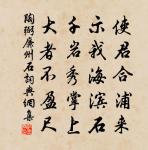 使君合浦来
示我海滨石
千岩秀掌上
大者不盈尺
陶弼廉州石词典网集